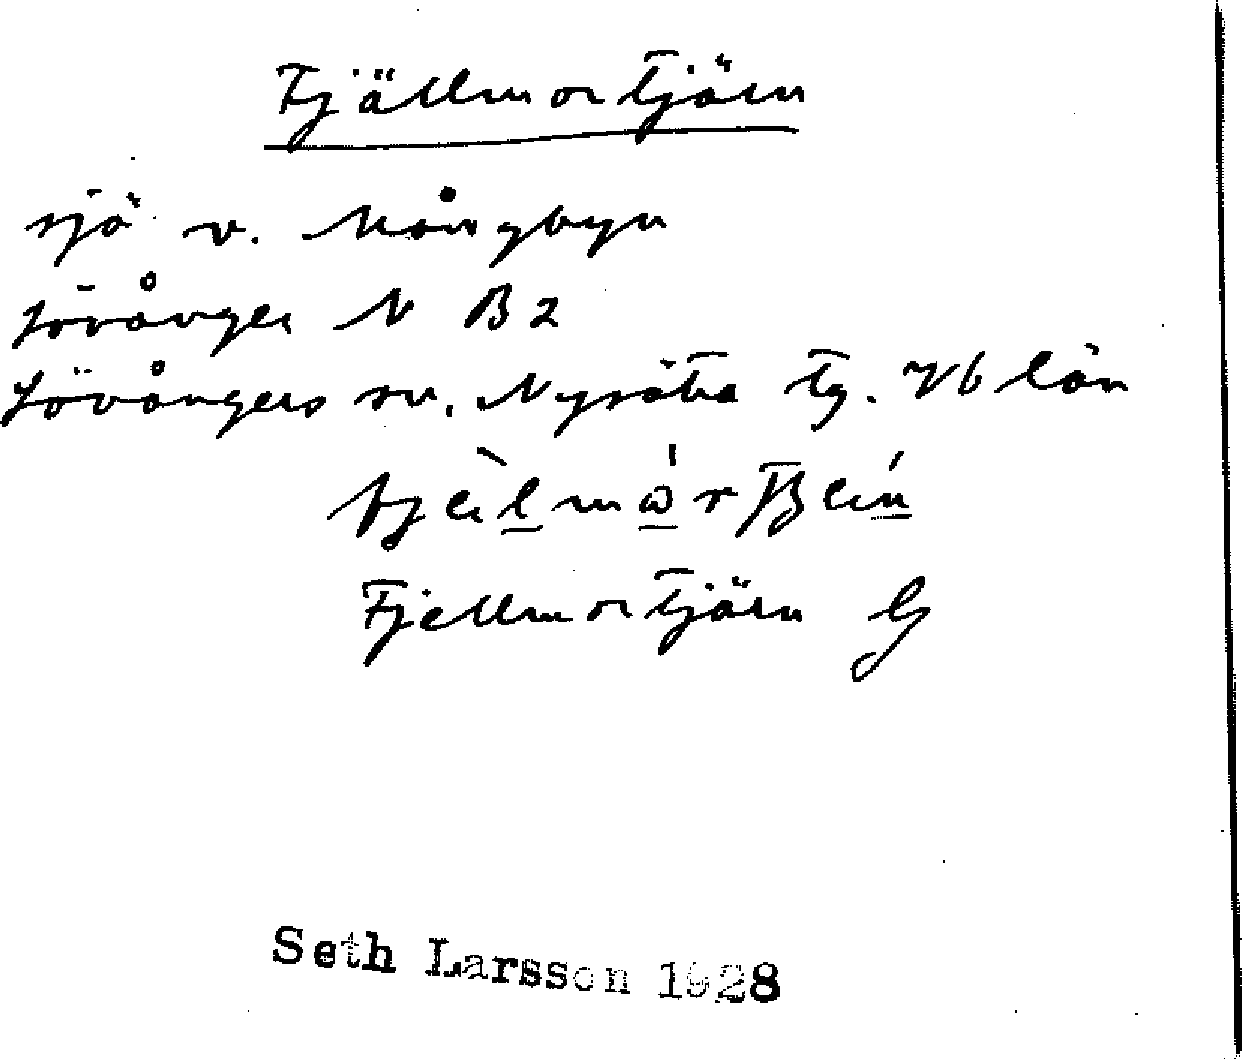 Fjällmortjärn
sjö v. Mångbyn
Lövånger N B2
Lövångers sn. Nysätra tg. Vb län
Fjellmortjärn G
Seth Larsson 1928